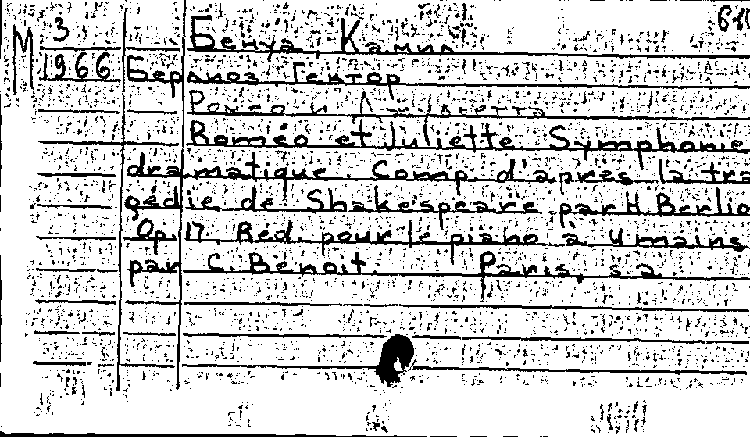 М 3 Бенуа, Камил
1966 Берлиоз Гектор
Ромео и Джульетта
Roméo et Juliette. Symphonie
dramatique. Comp. d'après la tra
gédie de Shakespeare par H. Berlio
Op. 17. Réd. pour le piano à 4 mains
par C. Benoit. Paris, s.a.